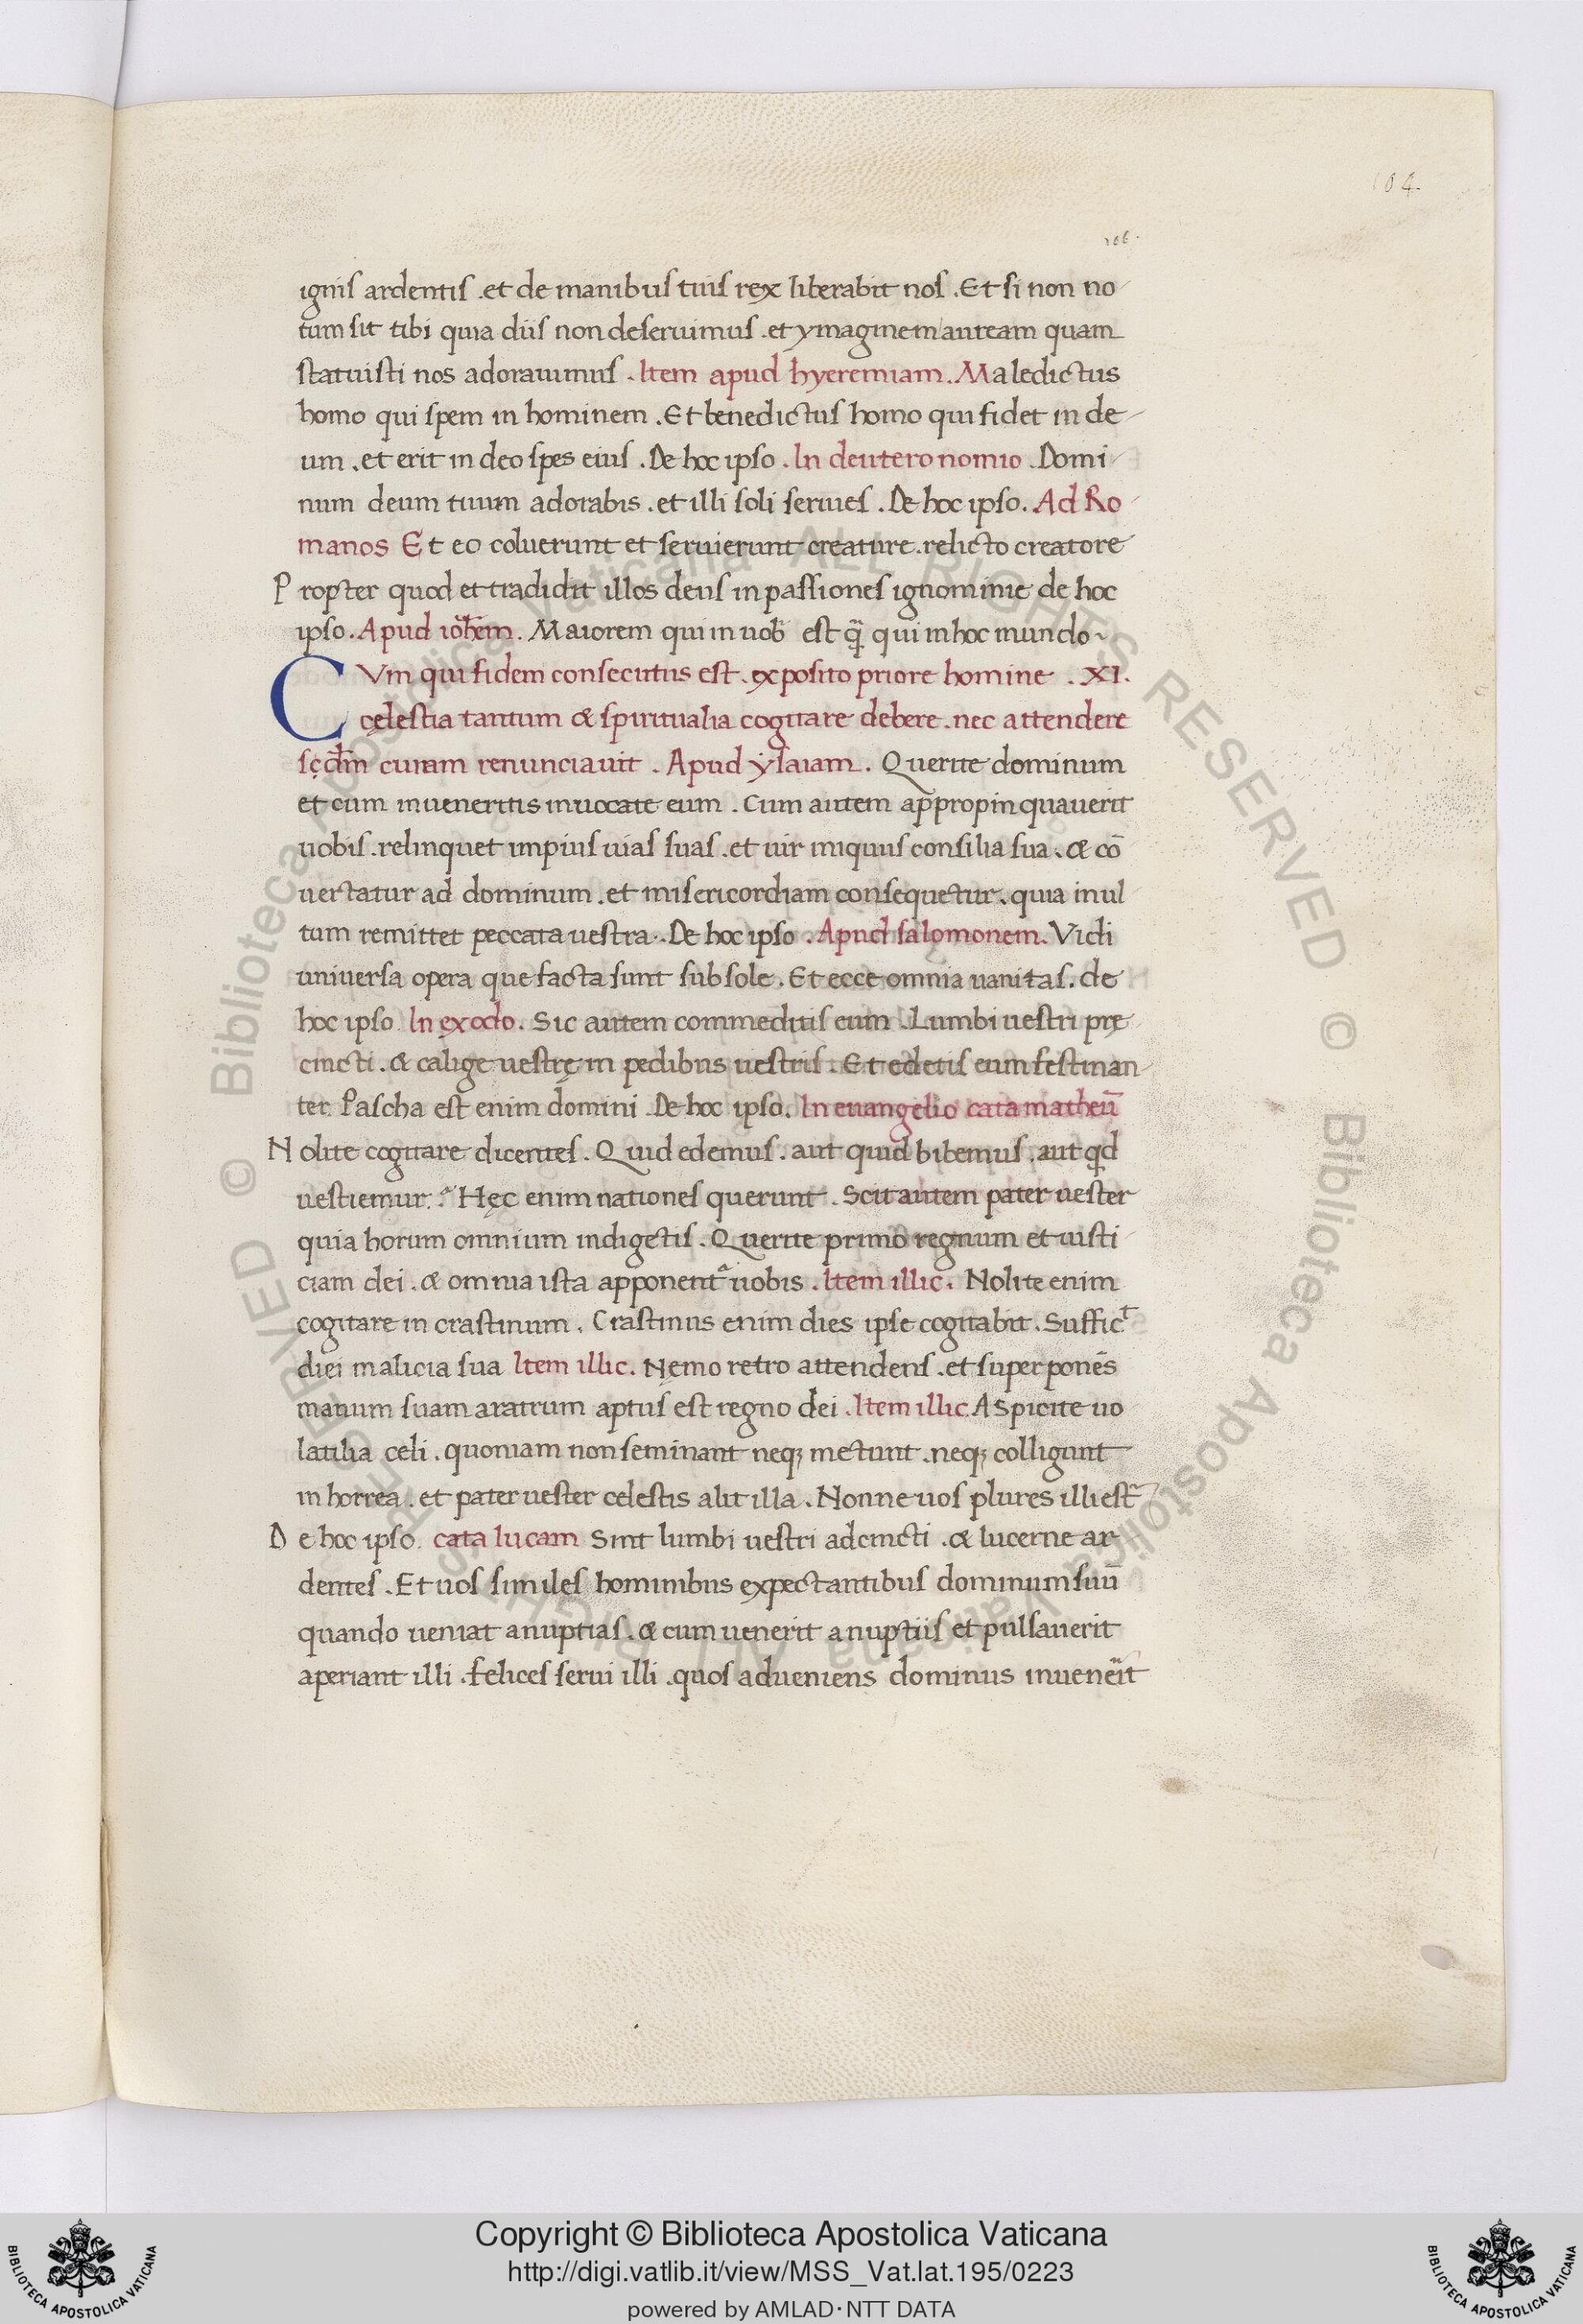 104.
106.
ignis ardentis .et de manibus tuis rex liberabit nos .Et si non no
tum sit tibi quia diis non deseruimus .et ymaginem auream quam
statuisti nos adorauimus .Item apud hyeremiam. Maledictus
homo qui spem in hominem .Et benedictus homo qui fidet in de
um .et erit in deo spes eius .De hoc ipso .In deuteronomio .Domi
num deum tuum adorabis .et illi soli seruies .De hoc ipso. Ad Ro
manos Et eo coluerunt et seruierunt creature .relicto creatore
Propter quod et tradidit illos deus in passiones ignominie de hoc
ipso. Apud ioh̄em. Maiorem qui in uob̄ est q̄ꝫ qui in hoc mundo
CVm qui fidem consecutus est .exposito priore homine .XI.
cęlestia tantum & spiritualia cogitare debere .nec attendere
sęcl̄m curam renunciauit .Apud ysaiam. Querite dominum
et cum inueneritis inuocate eum .Cum autem appropinquauerit
uobis .relinquet impius uias suas .et uir iniquus consilia sua .& cō
uertatur ad dominum .et misericordiam consequetur .quia inul
tum remittet peccata uestra ..De hoc ipso .Apud salomonem. Vidi
uniuersa opera que facta sunt sub sole .Et ecce omnia uanitas. de
hoc ipso In exodo. Sic autem commeditis eum .Lumbi uestri prę
cincti .& calige uestrę in pedibus uestris .Et edetis eum festinan
ter. Pascha est enim domini .De hoc ipso. In euangelio cata matheū
Nolite cogitare dicentes .Quid edemus .aut quid bibemus .aut qd
uestiemur.? Hęc enim nationes querunt .Scit autem pater uester
quia horum omnium indigetis .Querite primo regnum et iusti
ciam dei .& omnia ista apponent᷑ uobis .Item illic. Nolite enim
cogitare in crastinum .Crastinus enim dies ipse cogitabit .Sufficᵗ
diei malicia sua Item illic. Nemo retro attendens .et super ponēs
manum suam aratrum aptus est regno dei .Item illic Aspicite uo
latilia celi .quoniam non seminant neqꝫ metunt .neqꝫ colligunt
in horrea .et pater uester celestis alit illa .Nonne uos plures illi est᷑
De hoc ipso. cata lucam Sint lumbi uestri adcincti .& lucerne ar
dentes .Et uos similes hominibus expectantibus dominum suū
quando ueniat a nuptias .& cum uenerit a nuptiis et pulsauerit
aperiant illi .felices serui illi .quos adueniens dominus inuen̄it
© Biblioteca Apostolica Vaticana ALL RIGHTS RESERVED © Biblioteca Apostolica Vaticana ALL RIGHTS RESERVED
Copyright © Biblioteca Apostolica Vaticana
http://digi.vatlib.it/view/MSS_Vat.lat.195/0223
powered by AMLAD·NTT DATA
BIBLIOTECA APOSTOLICA VATICANA
BIBLIOTECA APOSTOLICA VATICANA